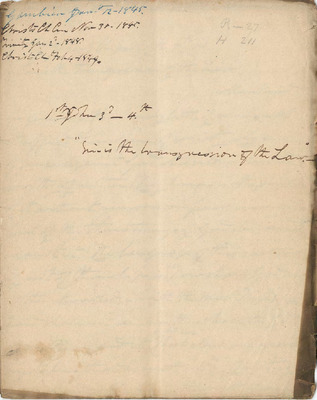 Jan 12 - 1845.
Christ Ch Nov 30 - 1845.
Trinity Jan 2 - 1848.
Christ Ch Feb 4 - 1874.
R - 27
H 211
1st John 3d - 4th
"Sin is the transgression of the Law."